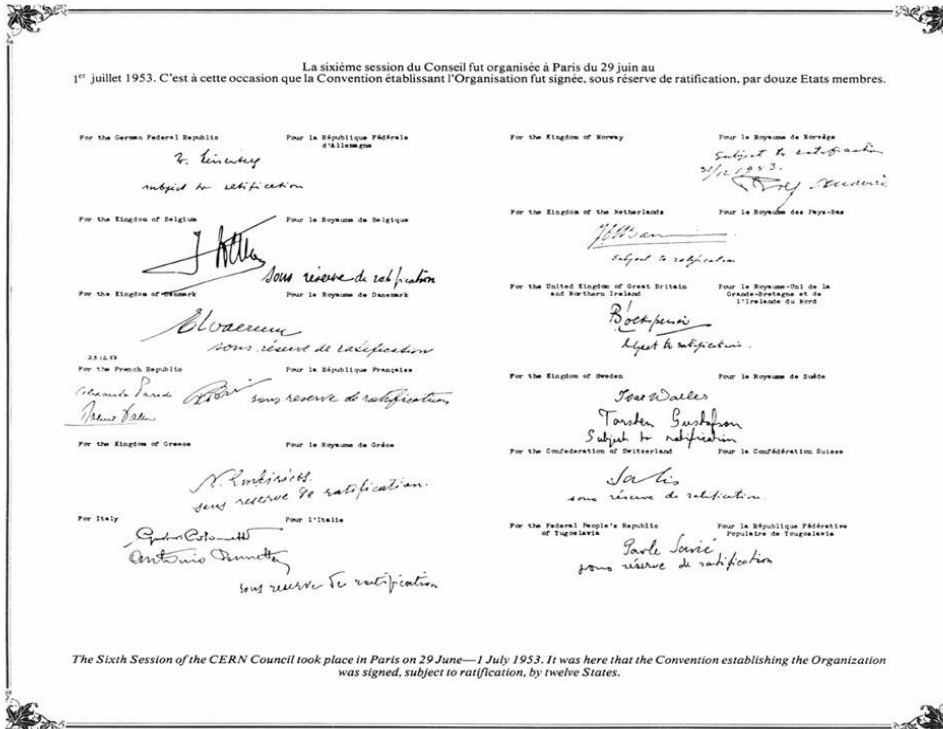 La sixième session du Conseil fut organisée à Paris du 29 juin au
1er juillet 1953. C'est à cette occasion que la Convention établissant l'Organisation fut signée, sous réserve de ratification, par douze Etats membres.
For the German Federal Republic Pour la République Fédérale
d'Allemagne
subject to ratification
For the Kingdom of Belgium Pour le Royaume de Belgique
sous réserve de ratification
For the Kingdom of Denmark Pour le Royaume de Danemark
sous réserve de ratification
23.12.53
For the French Republic Pour la République Française
sous reserve de ratification
For the Kingdom of Greece Pour le Royaume de Grèce
sous reserve de ratification.
For Italy Pour l'Italie
Antonio
sous reserve de ratification
For the Kingdom of Norway Pour le Royaume de Norvège
Subject to ratification
31/12 1953.
For the Kingdom of the Netherlands Pour le Royaume des Pays-Bas
subject to ratification
For the United Kingdom of Great Britain Pour le Royaume-Uni de la
and Northern Ireland Grande-Bretagne et de
l'Irelande du Nord
subject to ratification.
For the Kingdom of Sweden Pour le Royaume de Suède
Torsten Gustafson
Subject to ratification
For the Confederation of Switzerland Pour la Confédération Suisse
sous réserve de ratification.
For the Federal People's Republic Pour la République Fédérative
of Yugoslavia Populaire de Yougoslavie
Pavle Savić
sous réserve de ratification
The Sixth Session of the CERN Council took place in Paris on 29 June—1 July 1953. It was here that the Convention establishing the Organization
was signed, subject to ratification, by twelve States.